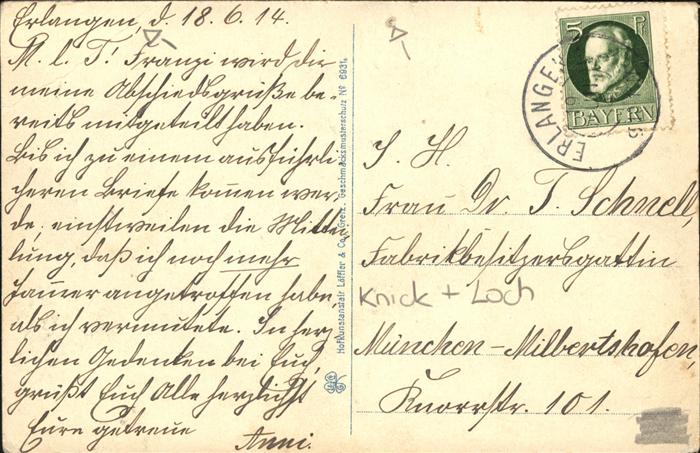 Erlangen, d. 18.6.14.
M. l. T! Franzi wird dir
meine Abschiedsgrüße be-
reits mitgeteilt haben.
Bis ich zu einem ausführli
cheren Briefe kommen wer-
de, einstweilen die Mittei
lung, daß ich noch mehr
Jammer angetroffen habe,
als ich vermutete. In herz
lichen Gedenken bei Euch,
grüßt Euch Alle herzlichst
Eure getreue
Anni.
Hofkunstanstalt Löffler & Co., Greiz. Geschmacksmusterschutz No 6931.
5 P
BAYERN
ERLANGEN
S. H.
Frau Dr. T. Schnell,
Fabrikbesitzersgattin
Knick + Loch
München-Milbertshofen,
Knorrstr. 101.